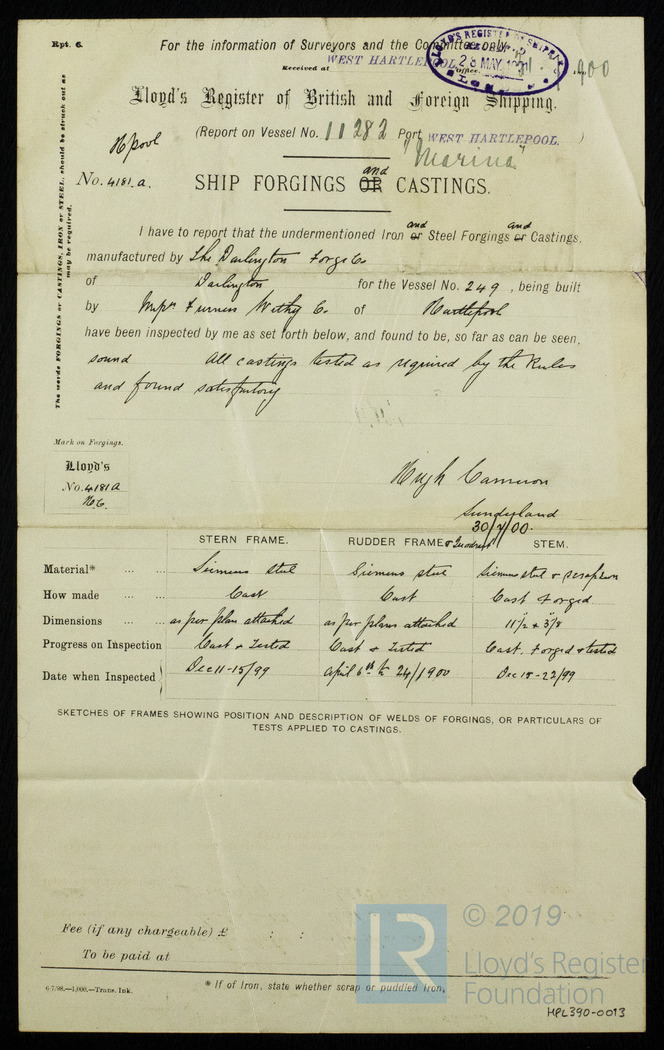 Rpt. 6.
For the information of Surveyors and the Committee only.
Received at WEST HARTLEPOOL Office, 1900
LLOYD'S REGISTER OF SHIPPING
28 MAY 1901
LONDON
Lloyd's Register of British and Foreign Shipping.
(Report on Vessel No. 11282 Port WEST HARTLEPOOL. )
"Marina"
H'pool
No. 4181.a.
and
SHIP FORGINGS OR CASTINGS.
The words FORGINGS or CASTINGS, IRON or STEEL, should be struck out as
may be required.
and and
I have to report that the undermentioned Iron or Steel Forgings or Castings,
manufactured by The Darlington Forge Co
of Darlington for the Vessel No. 249 , being built
by Mess Furness Withy Co. of Hartlepool
have been inspected by me as set forth below, and found to be, so far as can be seen,
sound All castings tested as required by the Rules
and found satisfactory
Mark on Forgings.
Lloyd's
No. 4181A
H.C.
Hugh Cameron
Sunderland
30/4/00.
STERN FRAME. RUDDER FRAME & Quadrant STEM.
Material* ... ... Siemens steel Siemens steel Siemens steel & scrap iron
How made ... Cast Cast Cast Forged
Dimensions ... as per plan attached as per plans attached 11½ x 3⅛
Progress on Inspection Cast & Tested Cast & Tested Cast. Forged & tested
Date when Inspected Dec 11-15/99 April 6th to 24/1900 Dec 15-22/99
SKETCHES OF FRAMES SHOWING POSITION AND DESCRIPTION OF WELDS OF FORGINGS, OR PARTICULARS OF
TESTS APPLIED TO CASTINGS.
Fee (if any chargeable) £ : :
To be paid at
6/7/98.—1,000.—Trans. Ink.
* If of Iron, state whether scrap or puddled Iron.
LR
© 2019
Lloyd's Register
Foundation
HPL390-0013